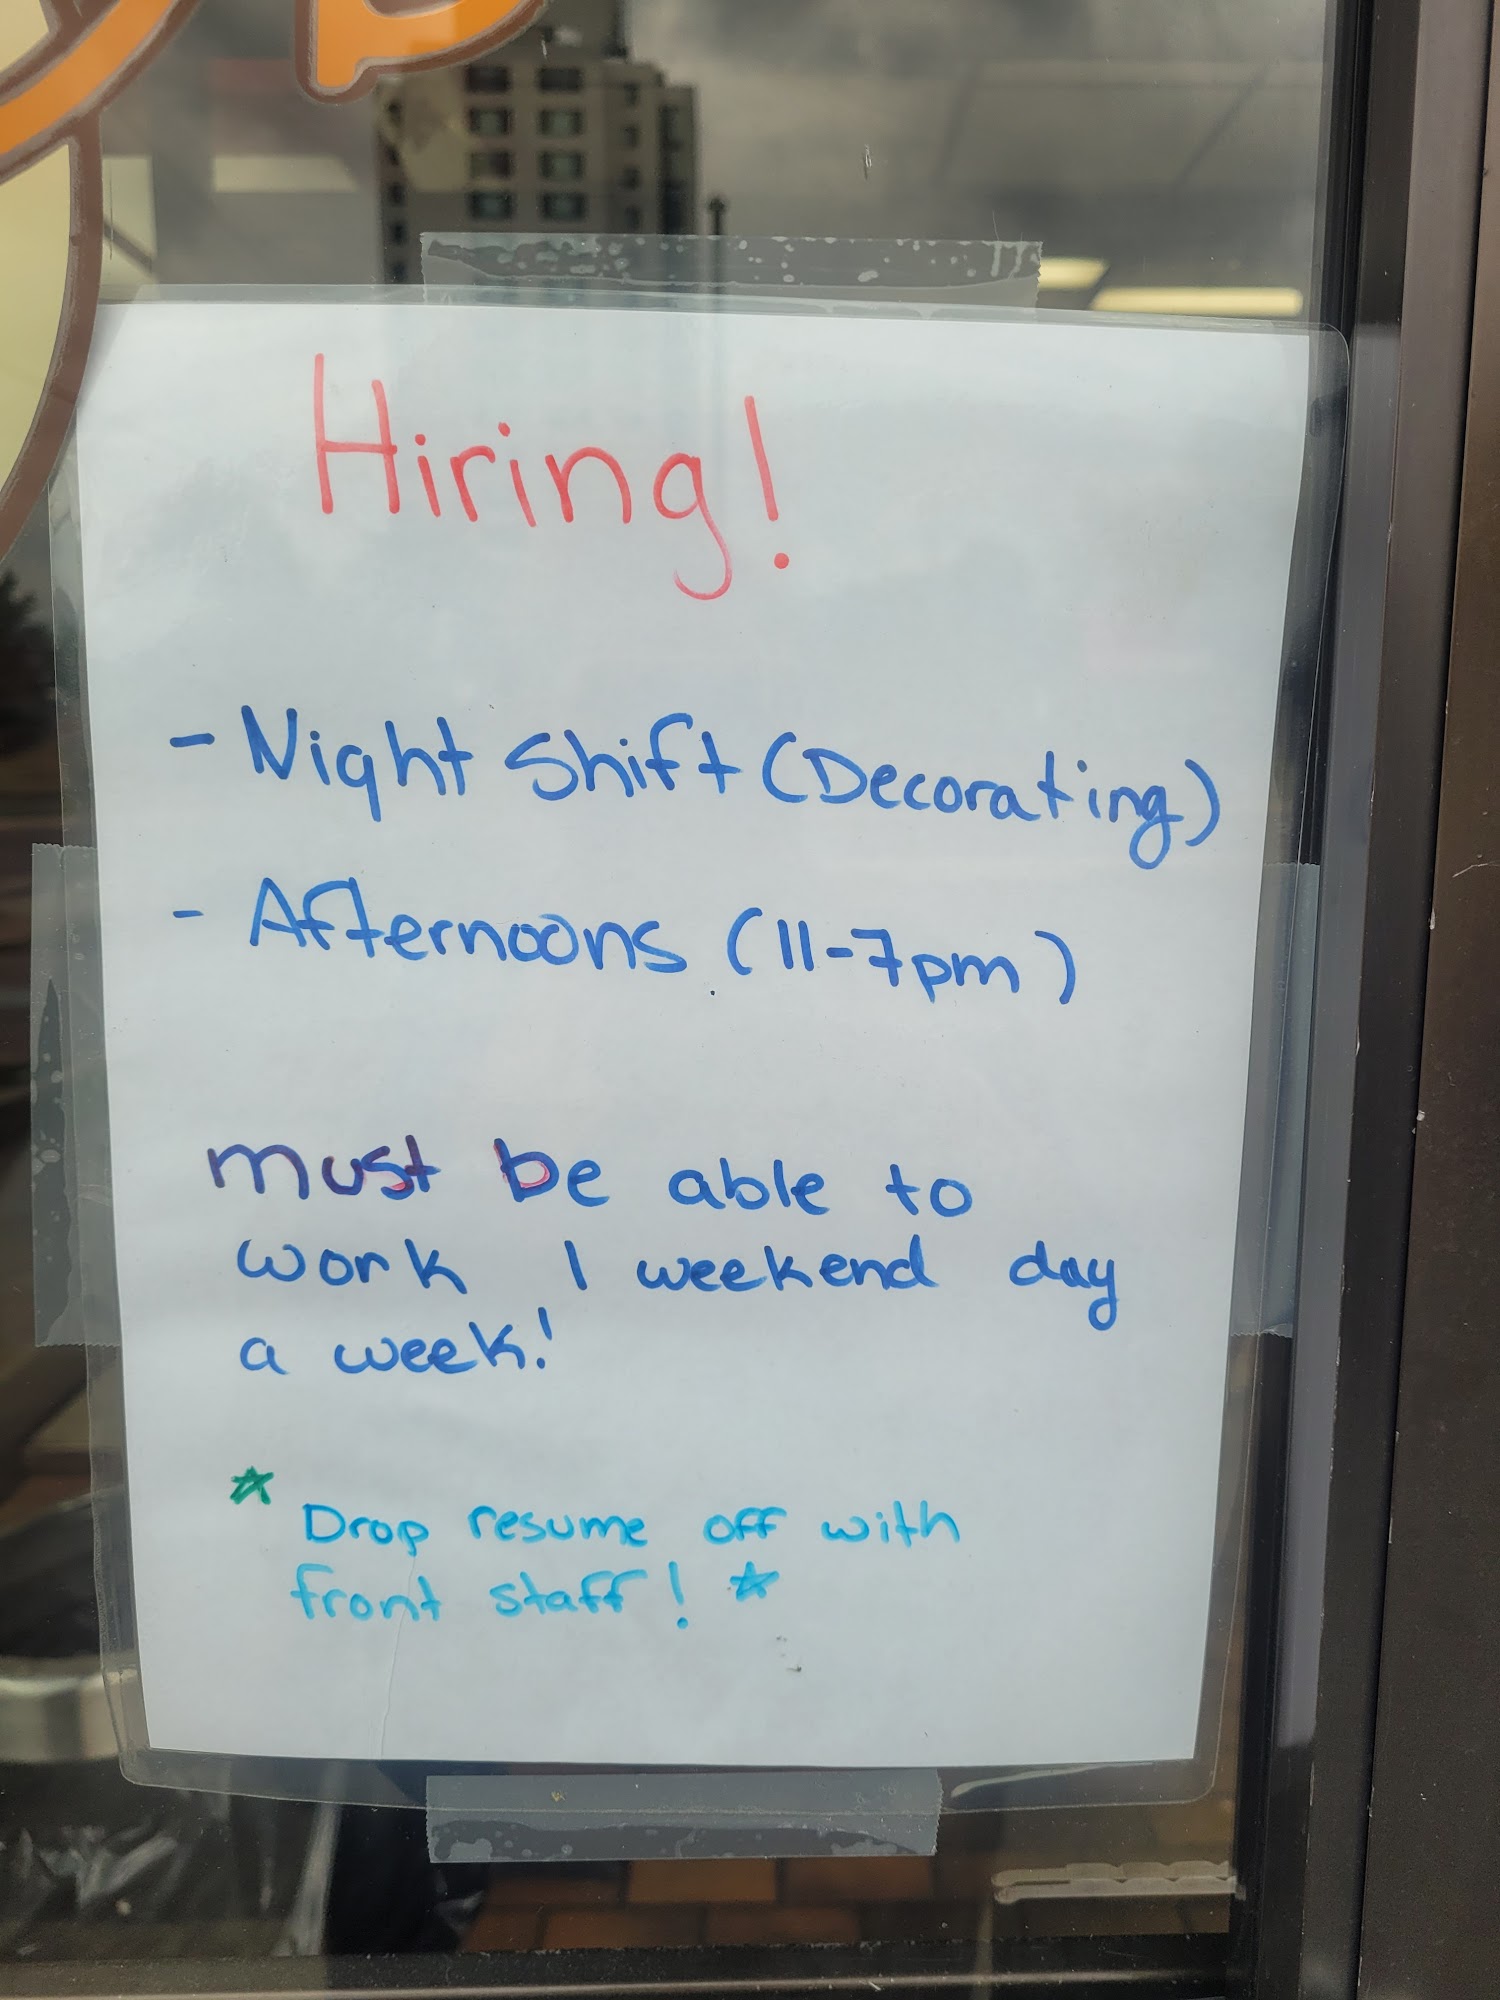 Hiring!
- Night Shift (Decorating)
- Afternoons (11-7pm)
must be able to
work 1 weekend day
a week!
* Drop resume off with
front staff! *